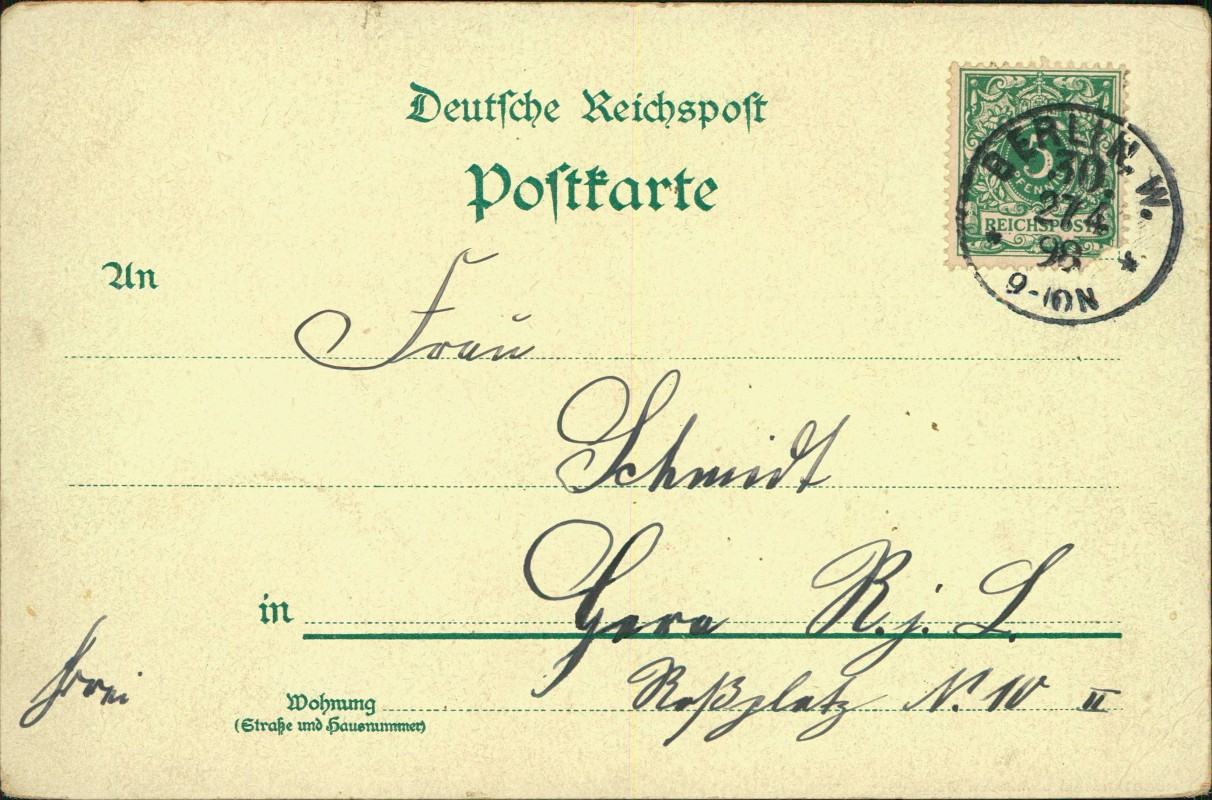 Deutsche Reichspost
Postkarte
5
PFENNIG
REICHSPOST
BERLIN. W.
30.
27 4
98
9-10N
An
Frau
Schmidt
in
Gera R. j. L.
frei
Wohnung
(Straße und Hausnummer)
Roßplatz No. 10 II